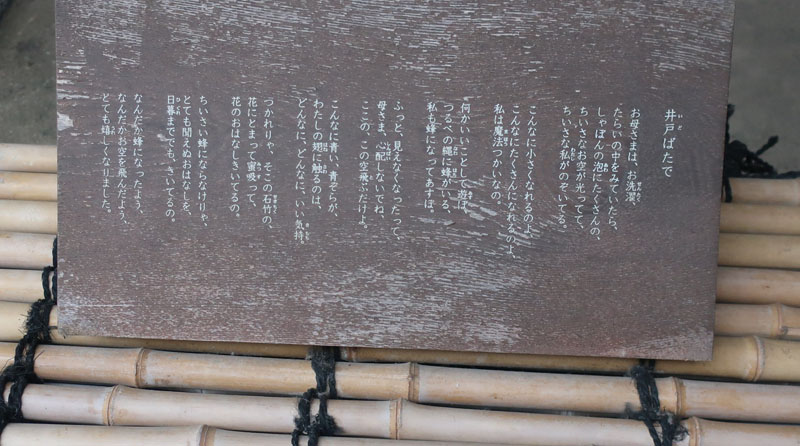 井戸ばたで
お母さまは、お洗濯、
たらいの中をみていたら、
しゃぼんの泡にたくさんの、
ちいさなお空が光ってて、
ちいさな私がのぞいてる。
こんなに小さくなれるのよ、
こんなにたくさんになれるのよ、
私は魔法つかいなの。
何かいいことして遊ぼ、
つるべの縄に蜂がいる、
私も蜂になってあすぼ。
ふっと、見えなくなったって、
母さま、心配しないでね、
ここの、この空飛ぶだけよ。
こんなに青い、青ぞらが、
わたしの翅に触るのは、
どんなに、どんなに、いい気持。
つかれりゃ、そこの石竹の、
花にとまって蜜吸って、
花のおはなしきいてるの。
ちいさい蜂にならなけりゃ、
とても聞えぬおはなしを、
日暮まででも、きいてるの。
なんだか蜂になったよう、
なんだかお空を飛んだよう、
とても嬉しくなりました。